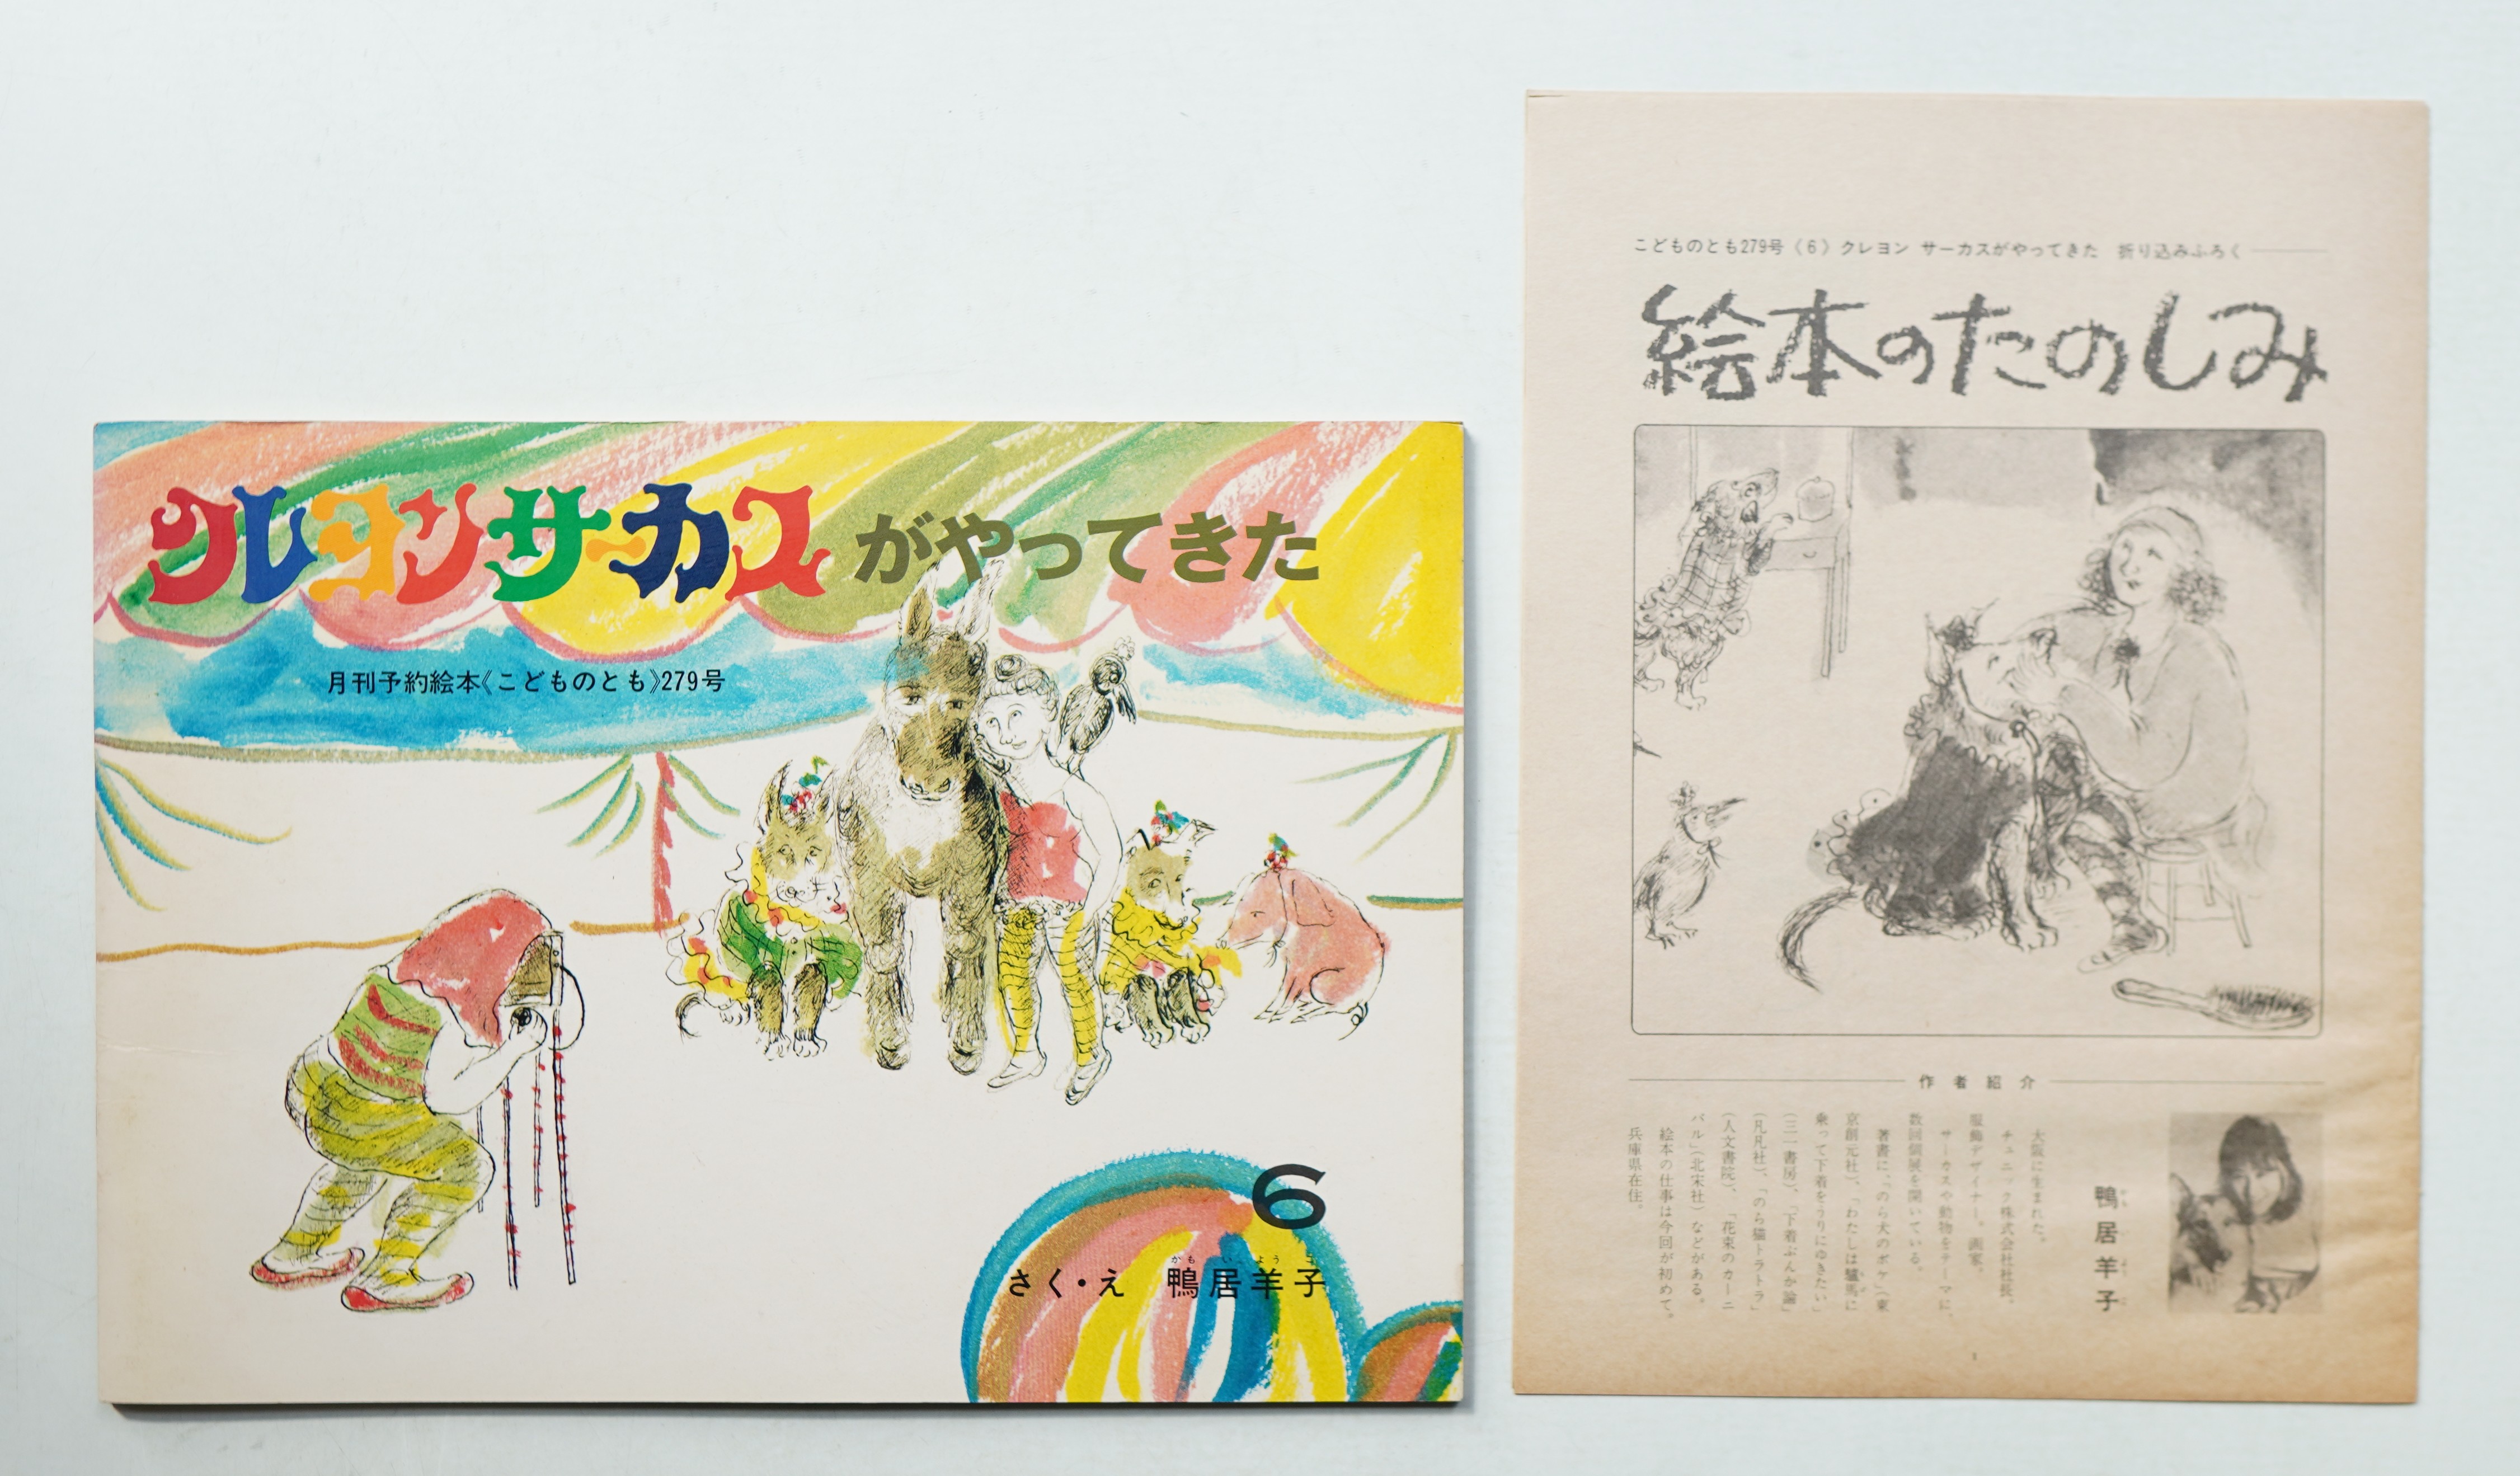 クレヨンサーカスがやってきた
月刊予約絵本《こどものとも》279号
6
かもいようこ
さく・え 鴨居羊子
こどものとも279号《6》クレヨン サーカスがやってきた 折り込みふろく
絵本のたのしみ
作者紹介
かもいようこ
鴨居羊子
大阪に生まれた。
チュニック株式会社社長。
服飾デザイナー。画家。
サーカスや動物をテーマに、
数回個展を開いている。
著書に、「のら犬のボケ」(東
京創元社)、「わたしは驢馬に
乗って下着をうりにゆきたい」
(三一書房)、「下着ぶんか論」
(凡凡社)、「のら猫トラトラ」
(人文書院)、「花束のカーニ
バル」(北宋社)などがある。
絵本の仕事は今回が初めて。
兵庫県在住。
1